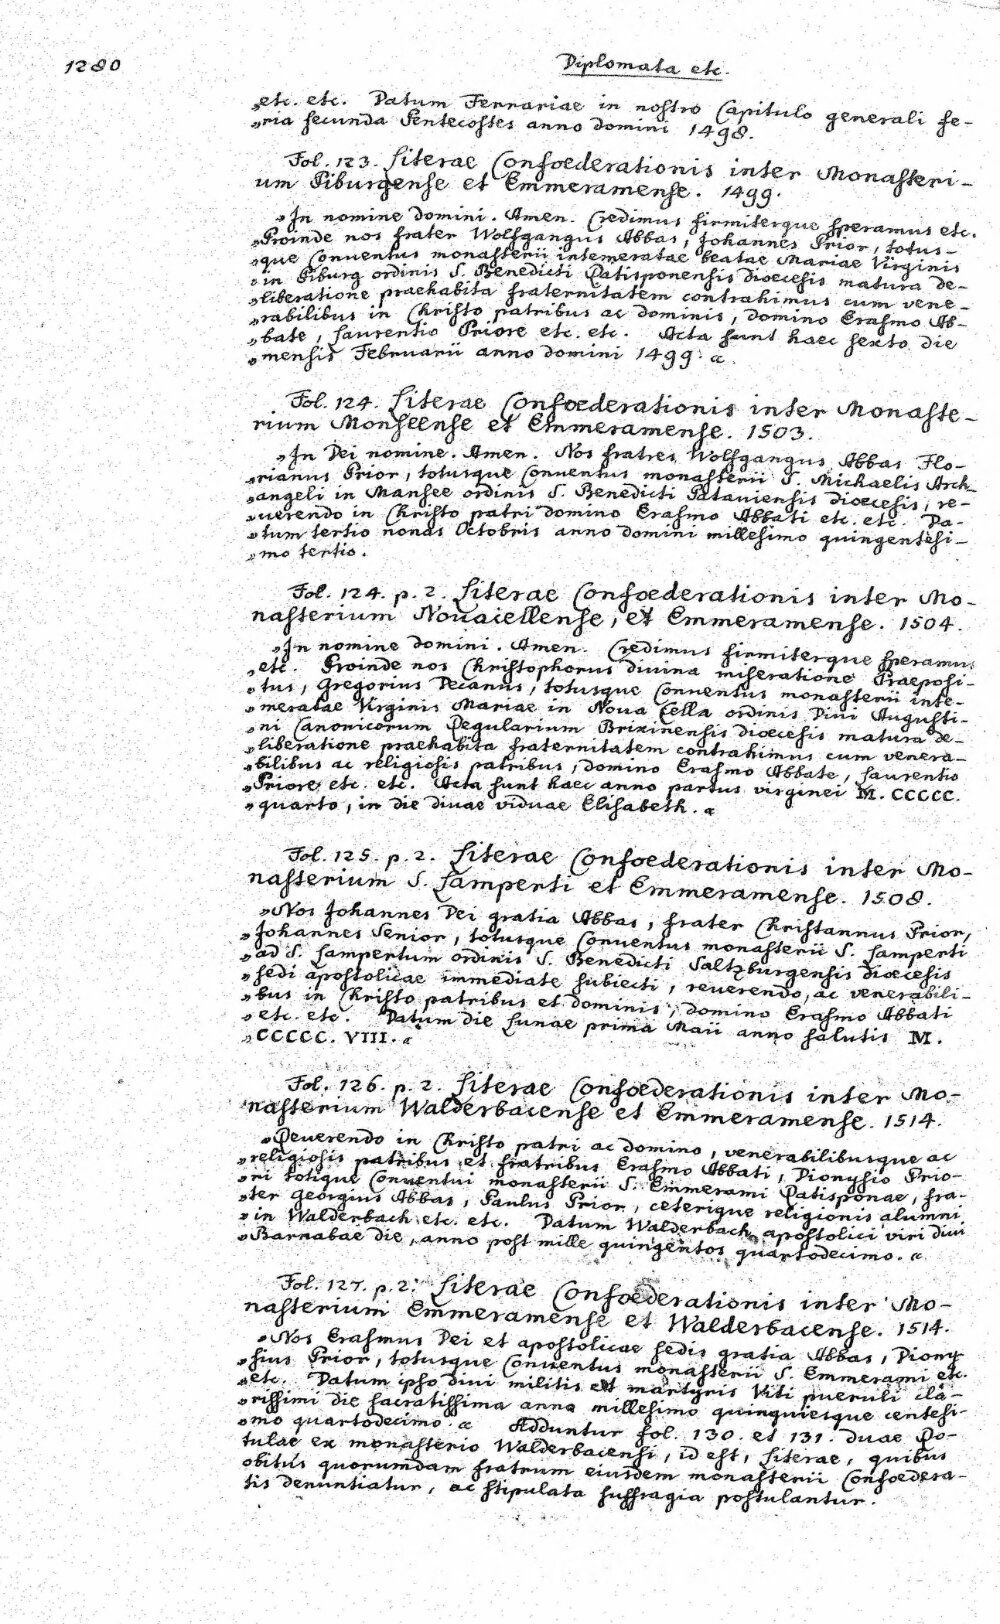 1280
Diplomata etc.
„etc. etc. Datum Ferrariae in nostro Capitulo generali fe-
„ria secunda Pentecostes anno domini 1498.
Fol. 123. Literae Confoederationis inter Monasteri-
um Piburgense et Emmeramense. 1499.
„In nomine domini. Amen. Credimus firmiterque speramus etc.
„Proinde nos frater Wolfgangus Abbas, Johannes Prior, totus-
„que Conventus monasterii intemeratae beatae Mariae Virginis
„in Biburg ordinis S. Benedicti Ratisponensis dioecesis matura de-
„liberatione praehabita fraternitatem contrahimus cum vene-
„rabilibus in Christo patribus ac dominis, domino Erasmo Ab-
„bate, Laurentio Priore etc. etc. Acta sunt haec sexto die
„mensis Februarii anno domini 1499. „
Fol. 124. Literae Confoederationis inter Monaste-
rium Monseense et Emmeramense. 1503.
„In Dei nomine. Amen. Nos fratres Wolfgangus Abbas Flo-
„rianus Prior, totusque Conventus monasterii S. Michaelis Arch-
„angeli in Mansee ordinis S. Benedicti Pataviensis dioecesis, re-
„uerendo in Christo patri domino Erasmo Abbati etc. etc. Da-
„tum tertio nonas Octobris anno domini millesimo quingentesi-
„mo tertio.
Fol. 124. p. 2. Literae Confoederationis inter Mo-
nasterium Nouacellense, et Emmeramense. 1504.
„In nomine domini. Amen. Credimus firmiterque speramus
„etc. Proinde nos Christophorus divina miseratione Praeposi-
„tus, Gregorius Decanus, totusque Conventus monasterii inte-
„meratae Virginis Mariae in Noua Cella ordinis Divi Augusti-
„ni Canonicorum Regularium Brixinensis dioecesis matura de-
„liberatione praehabita fraternitatem contrahimus cum venera-
„bilibus ac religiosis patribus, domino Erasmo Abbate, Laurentio
„Priore etc. etc. Acta sunt haec anno partus virginei M. CCCCC.
„quarto, in die divae viduae Elisabeth. „
Fol. 125. p. 2. Literae Confoederationis inter Mo-
nasterium S. Lamperti et Emmeramense. 1508.
„Nos Johannes Dei gratia Abbas, frater Christannus Prior,
„Johannes Senior, totusque Conuentus monasterii S. Lamperti
„ad S. Lampertum ordinis S. Benedicti Saltzburgensis dioecesis
„sedi apostolicae immediate subiecti, reuerendo, ac venerabili-
„bus in Christo patribus et dominis, domino Erasmo Abbati
„etc. etc. Datum die Lunae prima Maii anno salutis M.
„CCCCC. VIII. „
Fol. 126. p. 2. Literae Confoederationis inter Mo-
nasterium Walderbacense et Emmeramense. 1514.
„Reuerendo in Christo patri ac domino, venerabilibusque ac
„religiosis patribus et fratribus Erasmo Abbati, Dionysio Prio-
„ri totique Conventui monasterii S. Emmerami Ratisponae, fra-
„ter Georgius Abbas, Paulus Prior, ceterique religionis alumni
„in Walderbach etc. etc. Datum Walderbach apostolici viri divi
„Barnabae die, anno post mille quingentos quartodecimo. „
Fol. 127. p. 2. Literae Confoederationis inter Mo-
nasterium Emmeramense et Walderbacense. 1514.
„Nos Erasmus Dei et apostolicae sedis gratia Abbas, Diony-
„sius Prior, totusque Conuentus monasterii S. Emmerami etc.
„etc. Datum ipso divi militis et martyris Viti pueruli cla-
„rissimi die sacratissima anno millesimo quinquiesque centesi-
„mo quartodecimo. „ Adduntur fol. 130. et 131. duae Ro-
tulae ex monasterio Walderbacensi, id est, Literae, quibus
obitus quorumdam fratrum eiusdem monasterii Confoedera-
tis denuntiatur, ac stipulata suffragia postulantur.